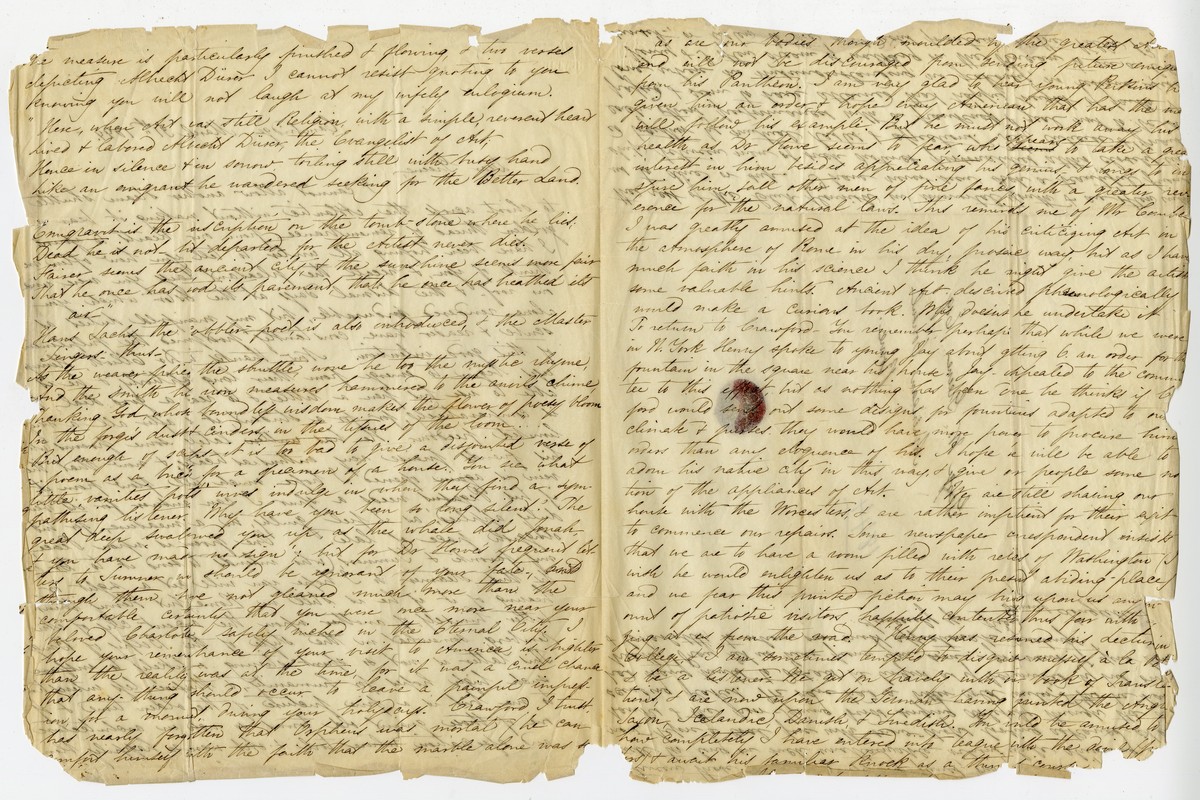 measure is particularly finished & flowing & two verses
depicting Albrecht Dürer I cannot resist quoting to you
knowing you will not laugh at my wifely eulogium.
"Here, when Art was still Religion, with a simple, reverent heart
Lived & labored Albrecht Dürer, the Evangelist of Art,
Hence in silence & in sorrow toiling still with busy hand
Like an emigrant he wandered seeking for the Better Land.
"Emigravit is the inscription on the tomb-stone where he lies.
Dead he is not but departed, for the Artist never dies.
Fairer seems the ancient city, & the sunshine seems more fair
That he once has trod its pavement, that he once has breathed its
air"
Hans Sachs, the cobbler-poet is also introduced, & the Master
Singers. thus—
As the weaver plied the shuttle wove he too the mystic rhyme
And the smith his iron measures hammered to the anvil's chime
Thanking God whose boundless wisdom makes the flower of poesy bloom
In the forge's dust & cinders, in the tissues of the loom.
But enough of it is too bad to give a disjointed verse of
a poem as a brick for a specimen of a house. You see what
little vanities poets' wives indulge in when they find a sym-
pathising listener. Why have you been so long silent. The
great deep swallowed you up, as the whale did Jonah,
& you have made no sign; but for Dr Howe's frequent let-
ters to Sumner we should be ignorant of your fate,
through them have not gleaned much more than the
comfortable certainty that you were once more near your
beloved Charlotte, safely in the Eternal City. I
hope your remembrance of your visit to America is brighter
than the reality was at the time, for it was a cruel chance
that any thing should occur to leave a painful impres-
sion for a moment during your holydays. Crawford I trust
has nearly forgotten that Orpheus was mortal, & can
comfort himself with the faith that the marble alone was so
as are our bodies though moulded by the greatest
and will not be discouraged from sending future
from his Pantheon. I am very glad to hear young Perkins has
given him an order & hope every American that has the
will follow his example. But he must not work away his
health as Dr Howe seems to fear, who appears to take a great
interest in him, besides appreciating his genius, & longs to in-
spire him, & all other men of fine fancy with a greater rev-
erence for the natural laws. This reminds me of Mr Combe
I was greatly amused at the idea of his criticizing Art in
the atmosphere of Rome in his dry, prosaic way, but as I have
much faith in his science I think he might give the artists
some valuable hints. Ancient Art described phrenologically
would make a curious book. Why doesn't he undertake it
To return to Crawford. You remember perhaps that while we were
in N. York Henry spoke to young Jay about getting C. an order for the
fountain in the square near his house. Jay appealed to the commit
tee to this but as nothing was given one he thinks if Craw
ford would send out some designs for fountains adapted to our
climate & they would have more power to procure him
orders than any eloquence of his. I hope he will be able to
adorn his native city in this way & give our people some no
tion of the appliances of Art. We are still sharing our
house with the Worcesters, & are rather impatient for their exit
to commence our repairs. Some newspaper correspondent insists
that we are to have a room filled with relics of Washington (I
wish he would enlighten us as to their present abiding-place
and we fear this printed fiction may bring upon us an
of patriotic visitors, happily contented thus far with
gazing at us from the road. Henry has resumed his lectures in
College, & I am sometimes tempted to disguise myself à la
to be a listener. We get on bravely with our book of Transla-
tions, & are now upon the German having finished the Anglo-
Saxon, Icelandic, Danish & Swedish. You would be amused to
how completely I have entered into league with the
& await his familiar knock as a thing of course